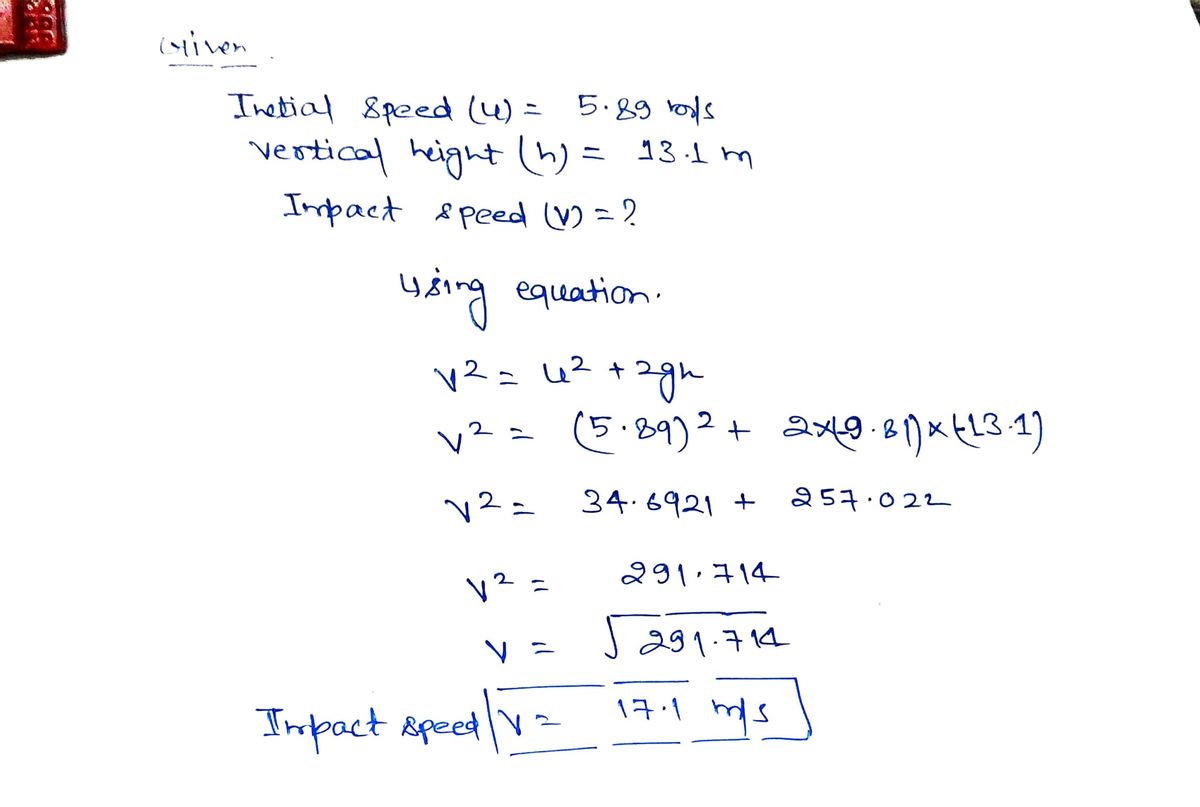 Given.
Initial speed (u) = 5.89 m/s
vertical height (h) = 13.1 m
Impact speed (v) = ?
using equation.
v² = u² + 2gh
v² = (5.89)² + 2×(-9.81)×(-13.1)
v² = 34.6921 + 257.022
v² = 291.714
v = √291.714
Impact speed v = 17.1 m/s